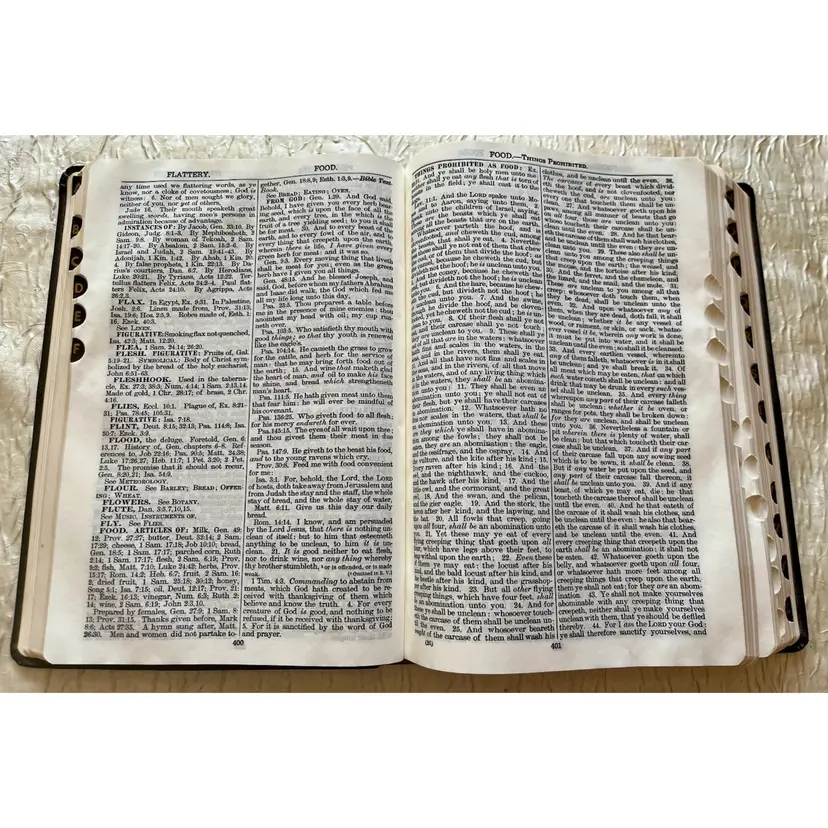 B
C
D
E
F
FLATTERY.
any time used we flattering words, as ye
know, nor a cloke of covetousness; God is
witness: 6. Nor of men sought we glory,
neither of you, nor yet of others.
Jude 16. Their mouth speaketh great
swelling words, having men's persons in
admiration because of advantage.
INSTANCES OF: By Jacob, Gen. 33:10. By
Gideon, Judg. 8:1-3. By Mephibosheth, 2
Sam. 9:8. By woman of Tekoah, 2 Sam.
14:17-20. By Absalom, 2 Sam. 15:2-6. By
Israel and Judah, 2 Sam. 19:41-43. By
Adonijah, 1 Kin. 1:42. By Ahab, 1 Kin. 20:
4. By false prophets, 1 Kin. 22:13. By Da-
rius's courtiers, Dan. 6:7. By Herodians,
Luke 20:21. By Tyrians, Acts 12:22. Ter-
tullus flatters Felix, Acts 24:2-4. Paul flat-
ters Felix, Acts 24:10. By Agrippa, Acts
26:2,3.
FLAX. In Egypt, Ex. 9:31. In Palestine,
Josh. 2:6. Linen made from, Prov. 31:13;
Isa. 19:9; Hos. 2:5,9. Robes made of, Esth. 1:
16; Ezek. 40:3.
See LINEN.
FIGURATIVE: Smoking flax not quenched,
Isa. 42:3; Matt. 12:20.
FLEA, 1 Sam. 24:14; 26:20.
FLESH. FIGURATIVE: Fruits of, Gal.
5:19-21. SYMBOLICAL: Body of Christ sym-
bolized by the bread of the holy eucharist,
John 6:51-63.
FLESHHOOK. Used in the taberna-
cle, Ex. 27:3; 38:3; Num. 4:14; 1 Sam. 2:13,14.
Made of gold, 1 Chr. 28:17; of brass, 2 Chr.
4:16.
FLIES, Eccl. 10:1. Plague of, Ex. 8:21-
31; Psa. 78:45; 105:31.
FIGURATIVE: Isa. 7:18.
FLINT, Deut. 8:15; 32:13; Psa. 114:8; Isa.
50:7; Ezek. 3:9.
FLOOD, the deluge. Foretold, Gen. 6:
13,17. History of, Gen. chapters 6-8. Ref-
erences to, Job 22:16; Psa. 90:5; Matt. 24:38;
Luke 17:26,27; Heb. 11:7; 1 Pet. 3:20; 2 Pet.
2:5. The promise that it should not recur,
Gen. 8:20,21; Isa. 54:9.
See METEOROLOGY.
FLOUR. See BARLEY; BREAD; OFFER-
ING; WHEAT.
FLOWERS. See BOTANY.
FLUTE, Dan. 3:5,7,10,15.
See MUSIC, INSTRUMENTS OF.
FLY. See FLIES.
FOOD. ARTICLES OF: Milk, Gen. 49:
12; Prov. 27:27; butter, Deut. 32:14; 2 Sam.
17:29; cheese, 1 Sam. 17:18; Job 10:10; bread,
Gen. 18:5; 1 Sam. 17:17; parched corn, Ruth
2:14; 1 Sam. 17:17; flesh, 2 Sam. 6:19; Prov.
9:2; fish, Matt. 7:10; Luke 24:42; herbs, Prov.
15:17; Rom. 14:2; Heb. 6:7; fruit, 2 Sam. 16:
2; dried fruit, 1 Sam. 25:18; 30:12; honey,
Song 5:1; Isa. 7:15; oil, Deut. 12:17; Prov. 21:
17; Ezek. 16:13; vinegar, Num. 6:3; Ruth 2:
14; wine, 2 Sam. 6:19; John 2:3,10.
Prepared by females, Gen. 27:9; 1 Sam. 8:
13; Prov. 31:15. Thanks given before, Mark
8:6; Acts 27:35. A hymn sung after, Matt.
26:30. Men and women did not partake to-
400
FOOD.
gether, Gen. 18:8,9; Esth. 1:3,9.—Bible Text
Book.
See BREAD; EATING; OVEN.
FROM GOD: Gen. 1:29. And God said,
Behold, I have given you every herb bear-
ing seed, which is upon the face of all the
earth, and every tree, in the which is the
fruit of a tree yielding seed; to you it shall
be for meat. 30. And to every beast of the
earth, and to every fowl of the air, and to
every thing that creepeth upon the earth,
wherein there is life, I have given every
green herb for meat: and it was so.
Gen. 9:3. Every moving thing that liveth
shall be meat for you; even as the green
herb have I given you all things.
Gen. 48:15. And he blessed Joseph, and
said, God, before whom my fathers Abraham
and Isaac did walk, the God which fed me
all my life long unto this day,
Psa. 23:5. Thou preparest a table before
me in the presence of mine enemies: thou
anointest my head with oil; my cup run-
neth over.
Psa. 103:5. Who satisfieth thy mouth with
good things; so that thy youth is renewed
like the eagle's.
Psa. 104:14. He causeth the grass to grow
for the cattle, and herb for the service of
man: that he may bring forth food out of
the earth; 15. And wine that maketh glad
the heart of man, and oil to make his face
to shine, and bread which strengtheneth
man's heart.
Psa. 111:5. He hath given meat unto them
that fear him: he will ever be mindful of
his covenant.
Psa. 136:25. Who giveth food to all flesh:
for his mercy endureth for ever.
Psa. 145:15. The eyes of all wait upon thee;
and thou givest them their meat in due
season.
Psa. 147:9. He giveth to the beast his food,
and to the young ravens which cry.
Prov. 30:8. Feed me with food convenient
for me:
Isa. 3:1. For, behold, the Lord, the LORD
of hosts, doth take away from Jerusalem and
from Judah the stay and the staff, the whole
stay of bread, and the whole stay of water,
Matt. 6:11. Give us this day our daily
bread.
Rom. 14:14. I know, and am persuaded
by the Lord Jesus, that there is nothing un-
clean of itself: but to him that esteemeth
anything to be unclean, to him it is un-
clean. 21. It is good neither to eat flesh,
nor to drink wine, nor any thing whereby
thy brother stumbleth, or is offended, or is made
weak. [Omitted in R. V.]
1 Tim. 4:3. Commanding to abstain from
meats, which God hath created to be re-
ceived with thanksgiving of them which
believe and know the truth. 4. For every
creature of God is good, and nothing to be
refused, if it be received with thanksgiving:
5. For it is sanctified by the word of God
and prayer.
FOOD.—THINGS PROHIBITED.
THINGS PROHIBITED AS FOOD: Ex.
And ye shall be holy men unto me:
neither shall ye eat any flesh that is torn of
in the field; ye shall cast it to the
Lev. 11:1. And the LORD spake unto Mo-
Aaron, saying unto them,
are the beasts which ye shall eat
all the beasts that are on the earth.
Whatsoever parteth the hoof, and is
and cheweth the cud, among
the beasts, that shall ye eat. 4. Neverthe-
ye not eat of them that chew
because he cheweth the cud,
not the hoof; he is unclean unto
coney, because he cheweth the
divideth not the hoof; he is un-
6. And the hare, because he chew-
cud, but divideth not the hoof; he
unto you. 7. And the swine,
he divide the hoof, and be cloven-
he cheweth not the cud; he is un-
8. Of their flesh shall ye not
their carcase shall ye not touch;
unclean to you. 9. These shall
of all that are in the waters: whatsoever
fins and scales in the waters, in the
and in the rivers, them shall ye eat.
And all that have not fins and scales in
the seas, and in the rivers, of all that move
in the waters, and of any living thing which
in the waters, they shall be an abomina-
tion unto you: 11. They shall be even an
abomination unto you; ye shall not eat of
their flesh, but ye shall have their carcases
abomination. 12. Whatsoever hath no
nor scales in the waters, that shall be
abomination unto you. 13. And these
they which ye shall have in abomina-
tion among the fowls; they shall not be
eaten, they are an abomination: the eagle,
and the ossifrage, and the ospray, 14. And
the vulture, and the kite after his kind; 15.
Every raven after his kind; 16. And the
owl, and the nighthawk, and the cuckoo,
and the hawk after his kind, 17. And the
little owl, and the cormorant, and the great
owl, 18. And the swan, and the pelican,
and the gier eagle, 19. And the stork, the
heron after her kind, and the lapwing, and
the bat. 20. All fowls that creep, going
upon all four, shall be an abomination unto
you. 21. Yet these may ye eat of every
flying creeping thing that goeth upon all
four, which have legs above their feet, to
22. Even these
of them ye may eat; the locust after his
kind, and the bald locust after his kind, and
the beetle after his kind, and the grasshop-
per after his kind. 23. But all other flying
creeping things, which have four feet, shall
be an abomination unto you. 24. And for
these ye shall be unclean: whosoever touch-
eth the carcase of them shall be unclean un-
til the even. 25. And whosoever beareth
ought of the carcase of them shall wash his
(26)
401
clothes, and be unclean until the even. 26.
The carcases of every beast which divid-
eth the hoof, and is not clovenfooted, nor
cheweth the cud, are unclean unto you: ev-
ery one that toucheth them shall be un-
clean. 27. And whatsoever goeth upon his
paws, among all manner of beasts that go
on all four, those are unclean unto you:
whoso toucheth their carcase shall be un-
clean until the even. 28. And he that bear-
eth the carcase of them shall wash his clothes,
and be unclean until the even: they are un-
clean unto you. 29. These also shall be un-
clean unto you among the creeping things
that creep upon the earth; the weasel, and
the mouse, and the tortoise after his kind,
30. And the ferret, and the chameleon, and
the lizard, and the snail, and the mole. 31.
These are unclean to you among all that
creep: whosoever doth touch them, when
they be dead, shall be unclean until the
even. 32. And upon whatsoever any of
them, when they are dead, doth fall, it shall
be unclean; whether it be any vessel of
wood, or raiment, or skin, or sack, whatso-
ever vessel it be, wherein any work is done,
it must be put into water, and it shall be
unclean until the even; so it shall be cleansed.
33. And every earthen vessel, whereinto
any of them falleth, whatsoever is in it shall
be unclean; and ye shall break it. 34. Of
all meat which may be eaten, that on which
such water cometh shall be unclean: and all
drink that may be drunk in every such ves-
sel shall be unclean. 35. And every thing
whereupon any part of their carcase falleth
shall be unclean; whether it be oven, or
ranges for pots, they shall be broken down:
for they are unclean, and shall be unclean
unto you. 36. Nevertheless a fountain or
pit wherein there is plenty of water, shall
be clean: but that which toucheth their car-
case shall be unclean. 37. And if any part
of their carcase fall upon any sowing seed
which is to be sown, it shall be clean. 38.
But if any water be put upon the seed, and
any part of their carcase fall thereon, it
shall be unclean unto you. 39. And if any
beast, of which ye may eat, die; he that
toucheth the carcase thereof shall be unclean
until the even. 40. And he that eateth of
the carcase of it shall wash his clothes, and
be unclean until the even: he also that bear-
eth the carcase of it shall wash his clothes,
and be unclean until the even. 41. And
every creeping thing that creepeth upon the
earth shall be an abomination; it shall not
be eaten. 42. Whatsoever goeth upon the
belly, and whatsoever goeth upon all four,
or whatsoever hath more feet among all
creeping things that creep upon the earth,
them ye shall not eat; for they are an abom-
ination. 43. Ye shall not make yourselves
abominable with any creeping thing that
creepeth, neither shall ye make yourselves
unclean with them, that ye should be defiled
thereby. 44. For I am the LORD your God:
ye shall therefore sanctify yourselves, and